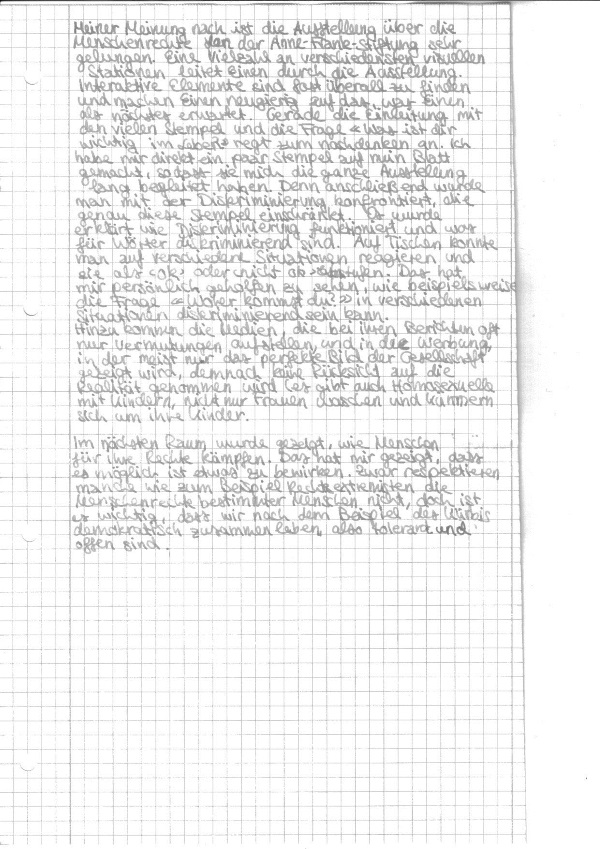 Meiner Meinung nach ist die Ausstellung über die
Menschenrechte von der Anne-Frank-Stiftung sehr
gelungen. Eine Vielzahl an verschiedensten visuellen
Stationen leitet einen durch die Ausstellung.
Interaktive Elemente sind fast überall zu finden
und machen einen neugierig auf das, was einen
als nächstes erwartet. Gerade die Einleitung mit
den vielen Stempel und die Frage «Was ist dir
wichtig im Leben» regt zum nachdenken an. Ich
habe mir direkt ein paar Stempel auf mein Blatt
gemacht, sodass sie mich die ganze Ausstellung
lang begleitet haben. Denn anschließend wurde
man mit der Diskriminierung konfrontiert, die
genau diese Stempel einschränkt. Es wurde
erklärt wie Diskriminierung funktioniert und was
für Wörter diskriminierend sind. Auf Tischen konnte
man auf verschiedene Situationen reagieren und
sie als «ok» oder «nicht ok» abstufen. Das hat
mir persönlich geholfen zu sehen, wie beispielsweise
die Frage «Woher kommst du?» in verschiedenen
Situationen diskriminierend sein kann.
Hinzu kommen die Medien, die bei ihren Berichten oft
nur Vermutungen aufstellen und in der Werbung,
in der meist nur das perfekte Bild der Gesellschaft
gezeigt wird, demnach keine Rücksicht auf die
Realität genommen wird (es gibt auch Homosexuelle
mit Kindern, nicht nur Frauen waschen und kümmern
sich um ihre Kinder.

Im nächsten Raum wurde gezeigt, wie Menschen
für ihre Rechte kämpfen. Das hat mir gezeigt, dass
es möglich ist etwas zu bewirken. Zwar respektieren
manche wie zum Beispiel Rechtsextremisten die
Menschenrechte bestimmter Menschen nicht, doch ist
es wichtig, dass wir nach dem Beispiel des Kürbis
demokratisch zusammenleben, also tolerant und
offen sind.